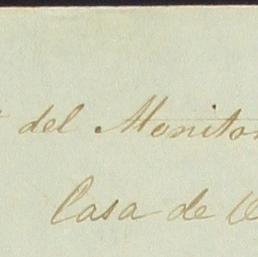 del Monitor
Casa de